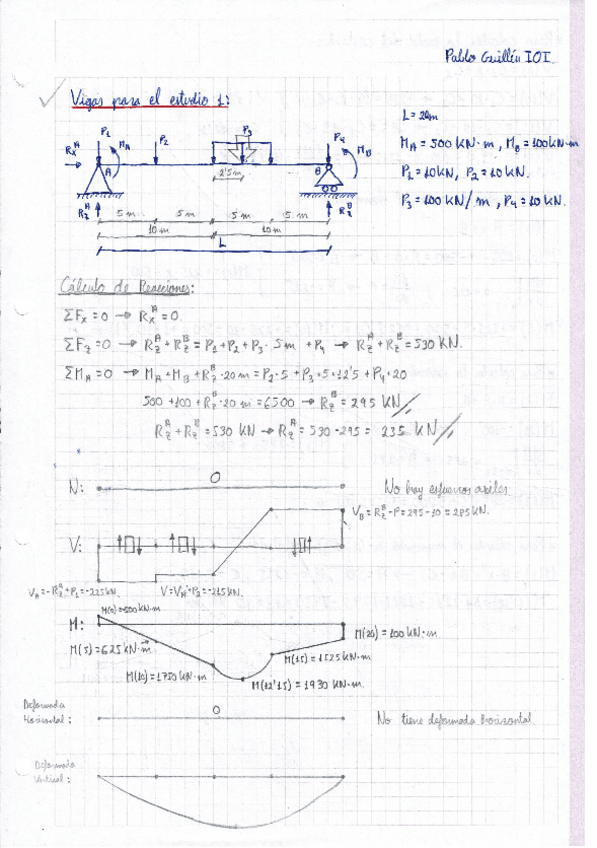 Pablo Guillén IOI
Vigas para el estudio 1:
L = 20m
M_A = 500 KN·m, M_B = 100 KN·m
P_1 = 10KN, P_2 = 10 KN.
P_3 = 100 KN/m, P_4 = 10 KN.
P_1 M_A P_2 P_3 P_4 M_B
R_x^A A B
2'5 m
R_z^A 5 m 5 m 5 m 5 m R_z^B
10 m 10 m
L
Cálculo de Reacciones:
ΣF_x = 0 → R_x^A = 0.
ΣF_z = 0 → R_z^A + R_z^B = P_1 + P_2 + P_3 · 5 m + P_4 → R_z^A + R_z^B = 530 KN.
ΣM_A = 0 → M_A + M_B + R_z^B · 20 m = P_2 · 5 + P_3 · 5 · 12'5 + P_4 · 20
500 + 100 + R_z^B · 20 m = 6500 → R_z^B = 295 KN
R_z^A + R_z^B = 530 KN → R_z^A = 530 - 295 = 235 KN
N: 0 No hay esfuerzos axiles
V_B = R_z^B - P = 295 - 10 = 285 KN.
V:
V_A = -R_z^A + P_1 = -225 KN. V = V_A + P_2 = -215 KN.
M(0) = 500 KN·m
M:
M(20) = 100 KN·m
M(5) = 625 KN·m
M(15) = 1525 KN·m
M(10) = 1750 KN·m
M(12'15) = 1930 KN·m.
Deformada
Horizontal: 0 No tiene deformada horizontal
Deformada
Vertical: